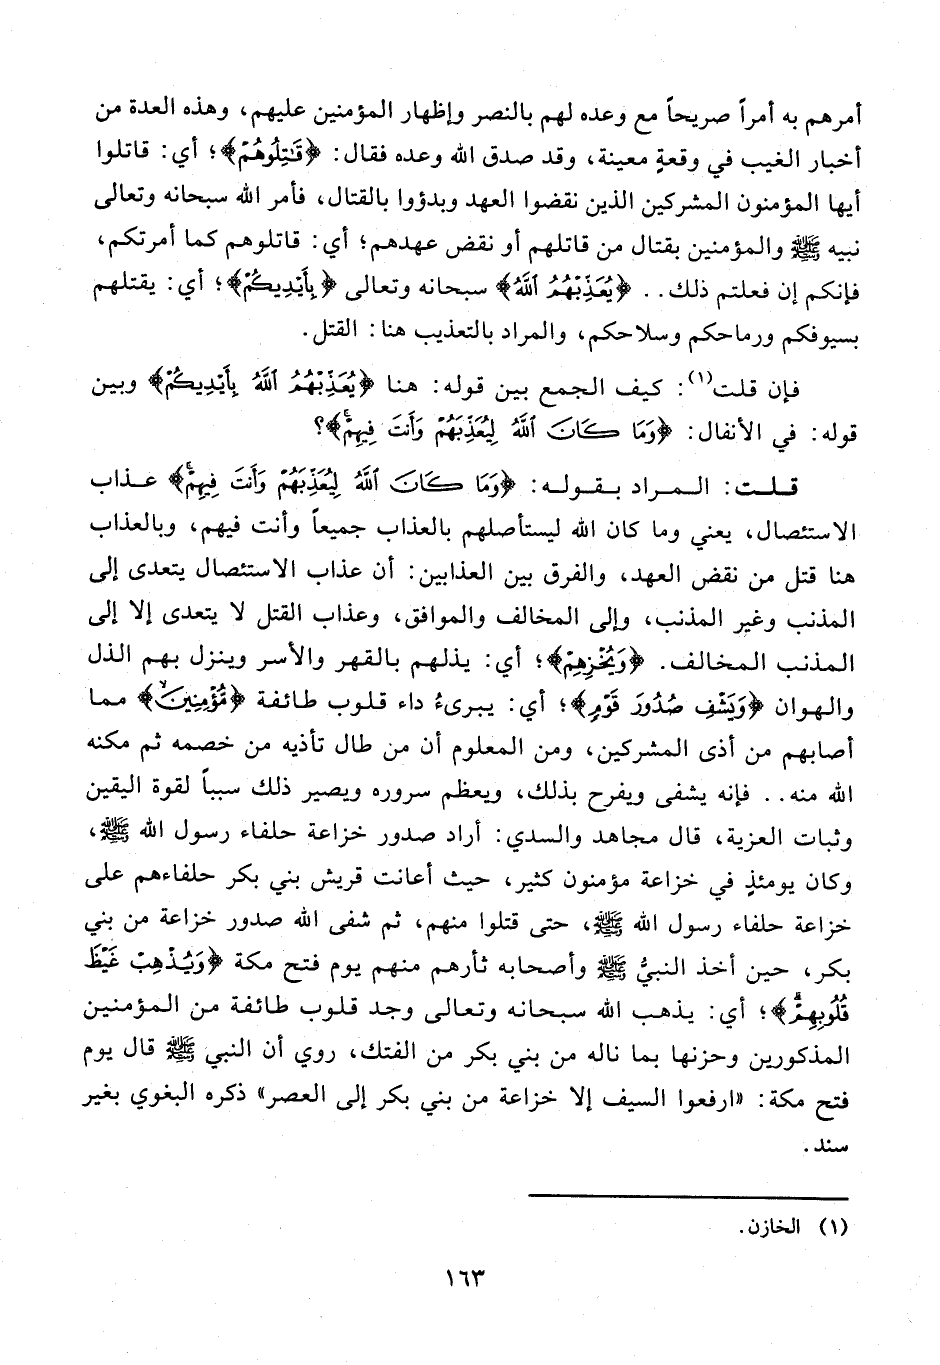 أمرهم به أمراً صريحاً مع وعده لهم بالنصر وإظهار المؤمنين عليهم، وهذه العدة من
أخبار الغيب في وقعةٍ معينة، وقد صدق الله وعده فقال: ﴿قَٰتِلُوهُمْ﴾؛ أي: قاتلوا
أيها المؤمنون المشركين الذين نقضوا العهد وبدؤوا بالقتال، فأمر الله سبحانه وتعالى
نبيه ﷺ والمؤمنين بقتال من قاتلهم أو نقض عهدهم؛ أي: قاتلوهم كما أمرتكم،
فإنكم إن فعلتم ذلك.. ﴿يُعَذِّبْهُمُ ٱللَّهُ﴾ سبحانه وتعالى ﴿بِأَيْدِيكُمْ﴾؛ أي: يقتلهم
بسيوفكم ورماحكم وسلاحكم، والمراد بالتعذيب هنا: القتل.
فإن قلت(١): كيف الجمع بين قوله: هنا ﴿يُعَذِّبْهُمُ ٱللَّهُ بِأَيْدِيكُمْ﴾ وبين
قوله: في الأنفال: ﴿وَمَا كَانَ ٱللَّهُ لِيُعَذِّبَهُمْ وَأَنتَ فِيهِمْۚ﴾؟
قلت: المراد بقوله: ﴿وَمَا كَانَ ٱللَّهُ لِيُعَذِّبَهُمْ وَأَنتَ فِيهِمْۚ﴾ عذاب
الاستئصال، يعني وما كان الله ليستأصلهم بالعذاب جميعاً وأنت فيهم، وبالعذاب
هنا قتل من نقض العهد، والفرق بين العذابين: أن عذاب الاستئصال يتعدى إلى
المذنب وغير المذنب، وإلى المخالف والموافق، وعذاب القتل لا يتعدى إلا إلى
المذنب المخالف. ﴿وَيُخْزِهِمْ﴾؛ أي: يذلهم بالقهر والأسر وينزل بهم الذل
والهوان ﴿وَيَشْفِ صُدُورَ قَوْمٍ﴾؛ أي: يبرىءُ داء قلوب طائفة ﴿مُّؤْمِنِينَۙ﴾ مما
أصابهم من أذى المشركين، ومن المعلوم أن من طال تأذيه من خصمه ثم مكنه
الله منه.. فإنه يشفى ويفرح بذلك، ويعظم سروره ويصير ذلك سبباً لقوة اليقين
وثبات العزية، قال مجاهد والسدي: أراد صدور خزاعة حلفاء رسول الله ﷺ،
وكان يومئذٍ في خزاعة مؤمنون كثير، حيث أعانت قريش بني بكر حلفاءهم على
خزاعة حلفاء رسول الله ﷺ، حتى قتلوا منهم، ثم شفى الله صدور خزاعة من بني
بكر، حين أخذ النبيُّ ﷺ وأصحابه ثأرهم منهم يوم فتح مكة ﴿وَيُذْهِبْ غَيْظَ
قُلُوبِهِمْۗ﴾؛ أي: يذهب الله سبحانه وتعالى وجد قلوب طائفة من المؤمنين
المذكورين وحزنها بما ناله من بني بكر من الفتك، روي أن النبي ﷺ قال يوم
فتح مكة: «ارفعوا السيف إلا خزاعة من بني بكر إلى العصر» ذكره البغوي بغير
سند.
(١) الخازن.
١٦٣